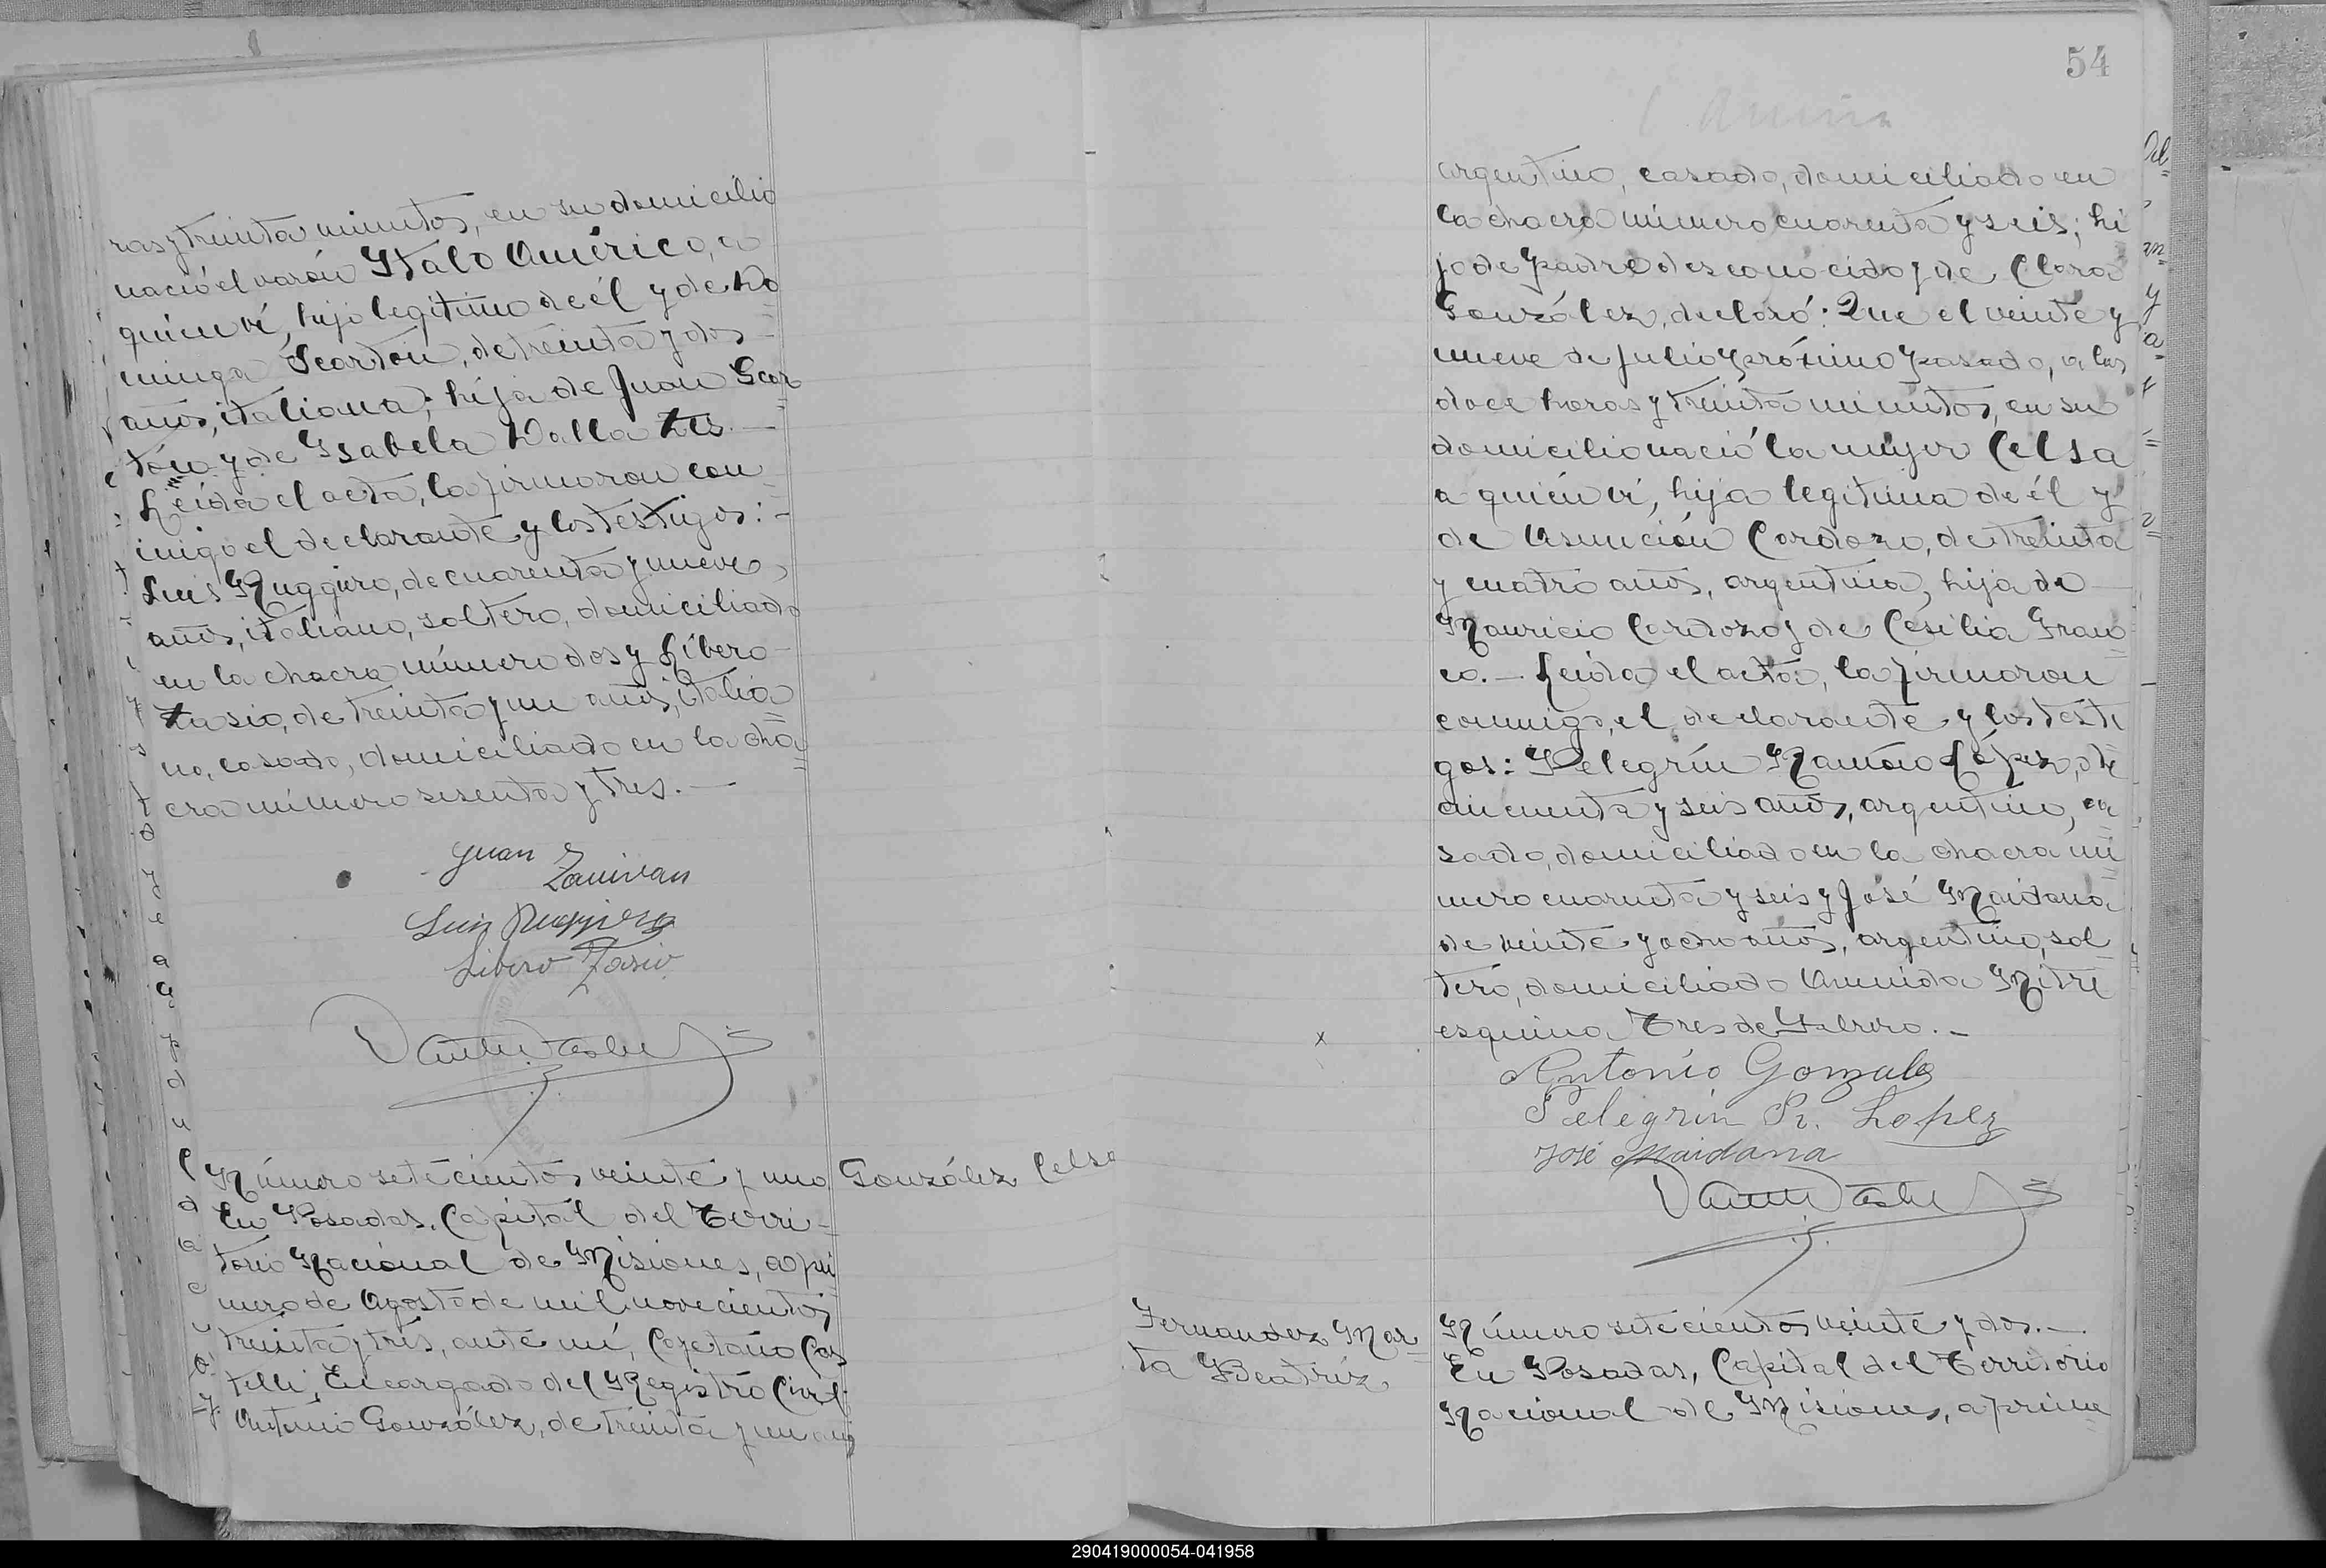 ras y treinta minutos, en su domicilio
nació el varón Italo Américo, a
quién ví, hijo legítimo de él y de Do
minga Scartón, de treinta y dos
años, italiana; hija de Juan Scar
tón y de Isabela Dalla
Leída el acta, la firmaron con
migo el declarante y los testigos:-
Luis Ruggiero, de cuarenta y nueve
años, italiano, soltero, domiciliado
en la chacra número dos y Líbero
Tasio, de treinta y un años, italia
no, casado, domiciliado en la cha
cra número sesenta y tres.-
Juan
Zanivan
Luis Ruggiero
Libero Tasio
Número setecientos veinte y uno
González Celsa
En Posadas, Capital del Terri-
torio Nacional de Misiones, a pri
mero de Agosto de mil novecientos
treinta y tres, ante mí, Cayetano Cas
telli, Encargado del Registro Civil
Antonio González, de treinta y un años
54
argentino, casado, domiciliado en
la chacra número cuarenta y seis; hi
jo de padre desconocido y de Clara
González, declaró: Que el veinte y
nueve de Julio próximo pasado, a las
doce horas y treinta minutos, en su
domicilio nació la mujer Celsa
a quién ví, hija legítima de él y
de Asunción Cordozo, de treinta
y cuatro años, argentina, hija de
Mauricio Cordozo y de Cesilia Fran
co.- Leída el acta, la firmaron
conmigo, el declarante y los testi
gos: Pelegrín Ramón López, de
cincuenta y seis años, argentino, ca
sado, domiciliado en la chacra nú
mero cuarenta y seis y José Maidana
de veinte y ocho años, argentino, sol
tero, domiciliado Avenida Mitre
esquina Tres de Febrero.-
Antonio Gonzalez
Pelegrin R. Lopez
José Maidana
Fernandez Mar
ta Beatríz
Número setecientos veinte y dos.-
En Posadas, Capital del Territorio
Nacional de Misiones, a prime
290419000054-041958